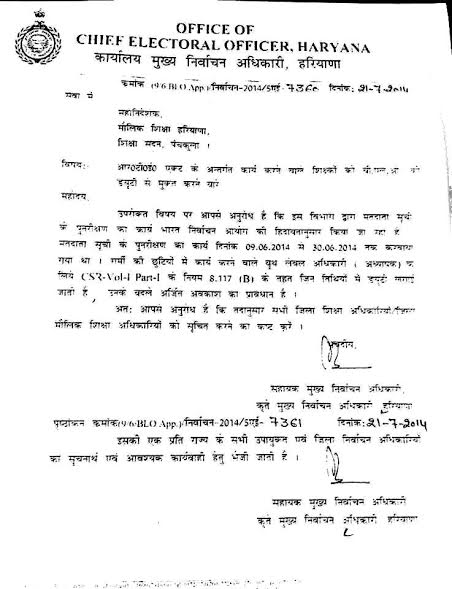 OFFICE OF
CHIEF ELECTORAL OFFICER, HARYANA
कार्यालय मुख्य निर्वाचन अधिकारी, हरियाणा
क्रमांक (9/6/BLO App.)/निर्वाचन-2014/5एई- 7360 दिनांक: 21-7-2014
सेवा में
महानिदेशक,
मौलिक शिक्षा हरियाणा,
शिक्षा सदन, पंचकुला ।
विषय:- आर०टी०ई० एक्ट के अन्तर्गत कार्य करने वाले शिक्षकों को बी.एल.ओ. की
ड्यूटी से मुक्त करने बारे
महोदय,
उपरोक्त विषय पर आपसे अनुरोध है कि इस विभाग द्वारा मतदाता सूची
के पुनरीक्षण का कार्य भारत निर्वाचन आयोग की हिदायतानुसार किया जा रहा है
मतदाता सूची के पुनरीक्षण का कार्य दिनांक 09.06.2014 से 30.06.2014 तक करवाया
गया था । गर्मी की छुटियों में कार्य करने वाले बूथ लेवल अधिकारी ( अध्यापक) के
लिये CSR-Vol-I Part-I के नियम 8.117 (B) के तहत जिन तिथियों में ड्यूटी लगाई
जाती है , उनके बदले अर्जित अवकाश का प्रावधान है ।
अत: आपसे अनुरोध है कि तदानुसार सभी जिला शिक्षा अधिकारियों/जिला
मौलिक शिक्षा अधिकारियों को सूचित करने का कष्ट करें ।
भवदीय,
सहायक मुख्य निर्वाचन अधिकारी,
कृते मुख्य निर्वाचन अधिकारी हरियाणा
पृष्ठांकन क्रमांक(9/6/BLO App.)/निर्वाचन-2014/5एई- 7361 दिनांक: 21-7-2014
इसकी एक प्रति राज्य के सभी उपायुक्त एवं जिला निर्वाचन अधिकारियों
को सूचनार्थ एवं आवश्यक कार्यवाही हेतु भेजी जाती है ।
सहायक मुख्य निर्वाचन अधिकारी
कृते मुख्य निर्वाचन अधिकारी हरियाणा